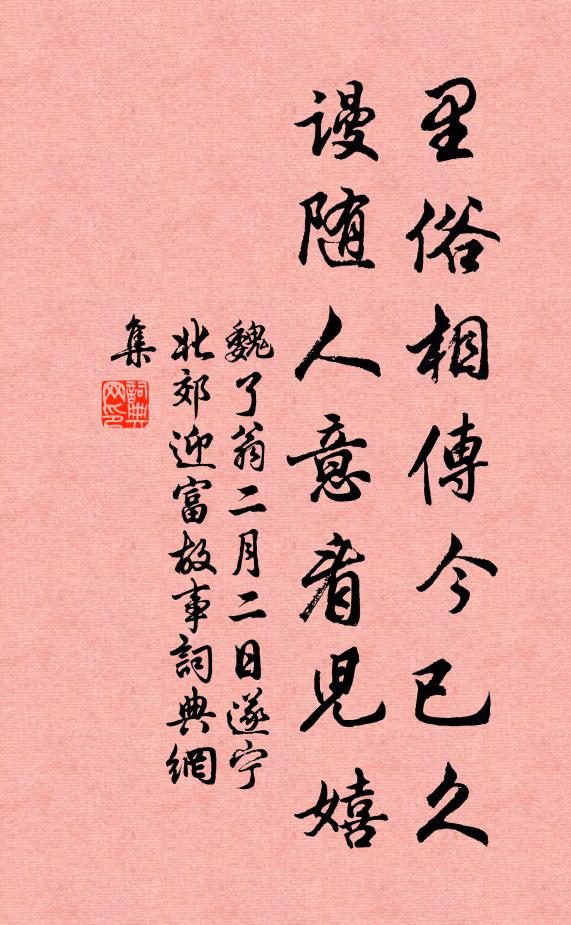 里俗相傳今已久
谩随人意看兒嬉
魏了翁二月二日遂宁
北郊迎富故事詞典網
集
詞典
网印